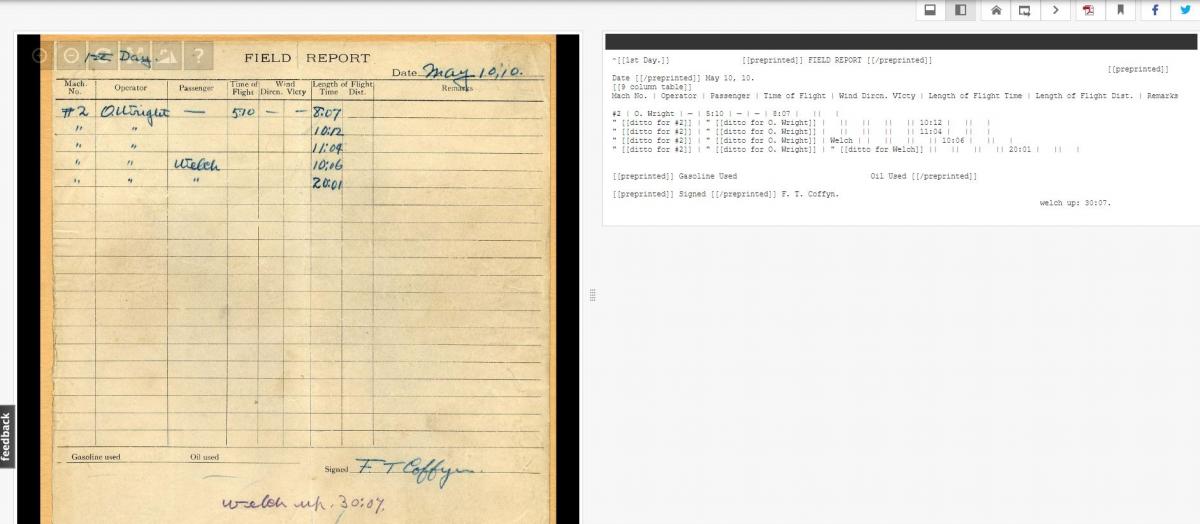 1st Day.
FIELD REPORT
Date May 10, 10.
Mach. No. Operator Passenger Time of Flight Wind Dircn. Vlcty Length of Flight Time Dist. Remarks
#2 OWright — 5:10 — — 8:07
" " 10:12
" " 11:04
" " Welch 10:06
" " " 20:01
Gasoline used Oil used
Signed F. T Coffyn.
welch up. 30:07.
feedback
^[[1st Day.]] [[preprinted]] FIELD REPORT [[/preprinted]]
[[preprinted]]
Date [[/preprinted]] May 10, 10.
[[9 column table]]
Mach No. | Operator | Passenger | Time of Flight | Wind Dircn. VIcty | Length of Flight Time | Length of Flight Dist. | Remarks
#2 | O. Wright | — | 5:10 | — | — | 8:07 | || |
" [[ditto for #2]] | " [[ditto for O. Wright]] | || || || || 10:12 | || |
" [[ditto for #2]] | " [[ditto for O. Wright]] | || || || || 11:04 | || |
" [[ditto for #2]] | " [[ditto for O. Wright]] | Welch | | || || || 10:06 | || |
" [[ditto for #2]] | " [[ditto for O. Wright]] | " [[ditto for Welch]] || || || || 20:01 | || |
[[preprinted]] Gasoline Used Oil Used [[/preprinted]]
[[preprinted]] Signed [[/preprinted]] F. T. Coffyn.
welch up: 30:07.